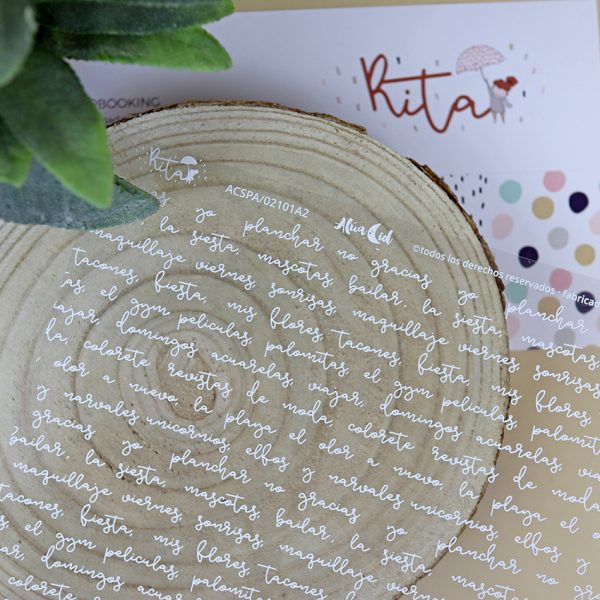 Rita
RBOOKING
Rita
ACSPA/02101A2
Alúa Cid
©todos los derechos reservados · fabricad
yo planchar no gracias yo planchar
la siesta mascotas, bailar, la siesta, mascotas,
maquillaje viernes, sonrisas, maquillaje viernes, sonrisas
tacones, fiesta, mis flores, tacones, fiesta, mis flores,
as, el gym peliculas, palomitas, el gym peliculas, palomit
viajar, domingos acuarelas, viajar, domingos acuarelas, via
la, colorete revistas de moda, colorete revistas de moda
, olor a nuevo, la playa el olor a nuevo, la playa el o
y narvales unicornios elfos y narvales unicornios, elfos y
gracias yo planchar no gracias yo planchar no
bailar, la siesta, mascotas, bailar, la siesta mascotas
maquillaje viernes, sonrisas, maquillaje viernes,
tacones, fiesta, mis flores, tacones, fiesta,
as, el gym peliculas, palomitas, el gym
ajar, domingos acuarelas,
colorete